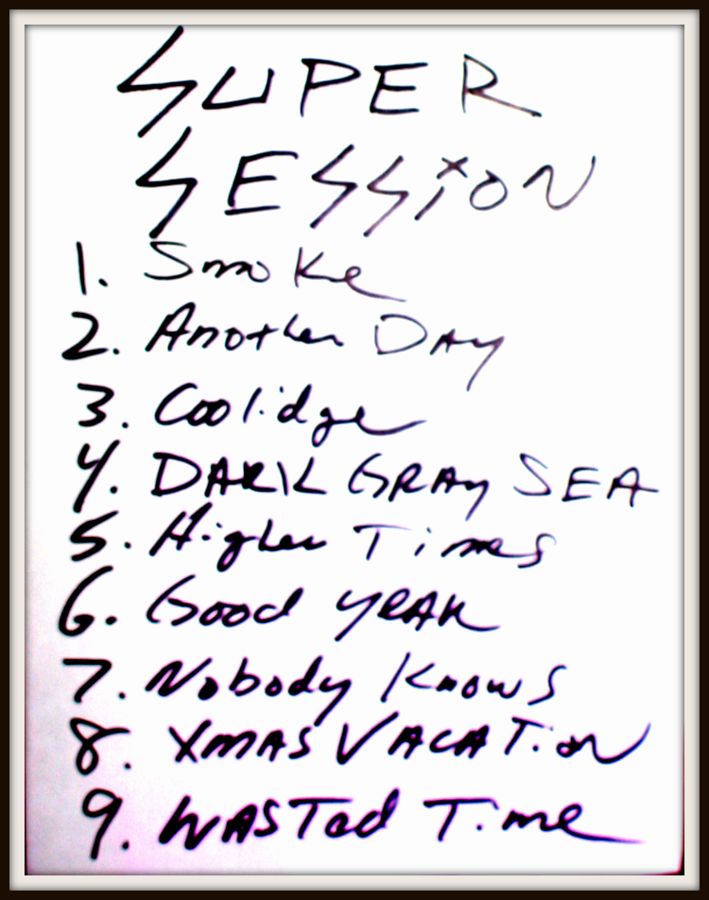 SUPER
SESSION
1. Smoke
2. Another DAy
3. Coolidge
4. DARK GRAy SEA
5. Higher Times
6. Good yeAR
7. Nobody Knows
8. XMAS VACATiON
9. WASTed Time